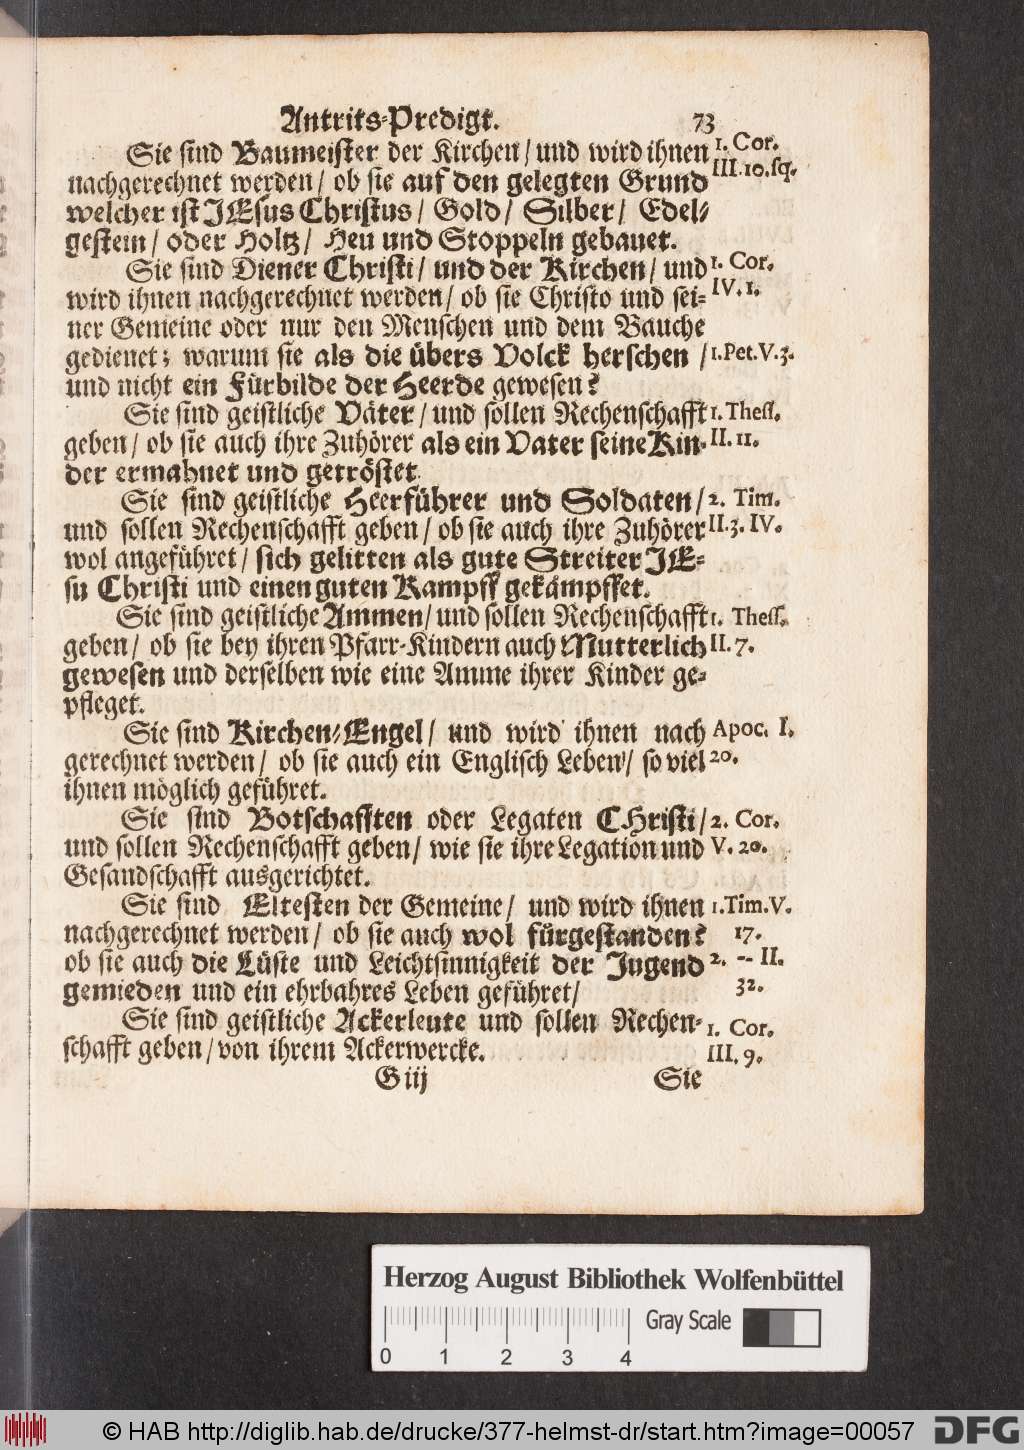 Antrits-Predigt. 73
Sie sind Baumeister der Kirchen/ und wird ihnen
nachgerechnet werden/ ob sie auf den gelegten Grund
welcher ist JEsus Christus/ Gold/ Silber/ Edel-
gestein/ oder Holtz/ Heu und Stoppeln gebauet.
1. Cor.
III. 10. sq.
Sie sind Diener Christi/ und der Kirchen/ und
wird ihnen nachgerechnet werden/ ob sie Christo und sei-
ner Gemeine oder nur den Menschen und dem Bauche
gedienet; warum sie als die übers Volck herschen/
und nicht ein Fürbilde der Heerde gewesen?
1. Cor.
IV. 1.
1. Pet. V. 3.
Sie sind geistliche Väter/ und sollen Rechenschafft
geben/ ob sie auch ihre Zuhörer als ein Vater seine Kin-
der ermahnet und getröstet.
1. Thess.
II. 11.
Sie sind geistliche Heerführer und Soldaten/
und sollen Rechenschafft geben/ ob sie auch ihre Zuhörer
wol angeführet/ sich gelitten als gute Streiter JE-
su Christi und einen guten Kampff gekämpffet.
2. Tim.
II. 3. IV.
Sie sind geistliche Ammen/ und sollen Rechenschafft
geben/ ob sie bey ihren Pfarr-Kindern auch Mutterlich
gewesen und derselben wie eine Amme ihrer Kinder ge-
pfleget.
1. Thess.
II. 7.
Sie sind Kirchen-Engel/ und wird ihnen nach
gerechnet werden/ ob sie auch ein Englisch Leben/ so viel
ihnen möglich geführet.
Apoc. I.
20.
Sie sind Botschafften oder Legaten CHristi/
und sollen Rechenschafft geben/ wie sie ihre Legation und
Gesandschafft ausgerichtet.
2. Cor.
V. 20.
Sie sind Eltesten der Gemeine/ und wird ihnen
nachgerechnet werden/ ob sie auch wol fürgestanden?
ob sie auch die Lüste und Leichtsinnigkeit der Jugend
gemieden und ein ehrbahres Leben geführet/
1. Tim. V.
17.
2. -- II.
32.
Sie sind geistliche Ackerleute und sollen Rechen-
schafft geben/ von ihrem Ackerwercke.
1. Cor.
III. 9.
G iij Sie
Herzog August Bibliothek Wolfenbüttel
Gray Scale
0 1 2 3 4
© HAB http://diglib.hab.de/drucke/377-helmst-dr/start.htm?image=00057 DFG